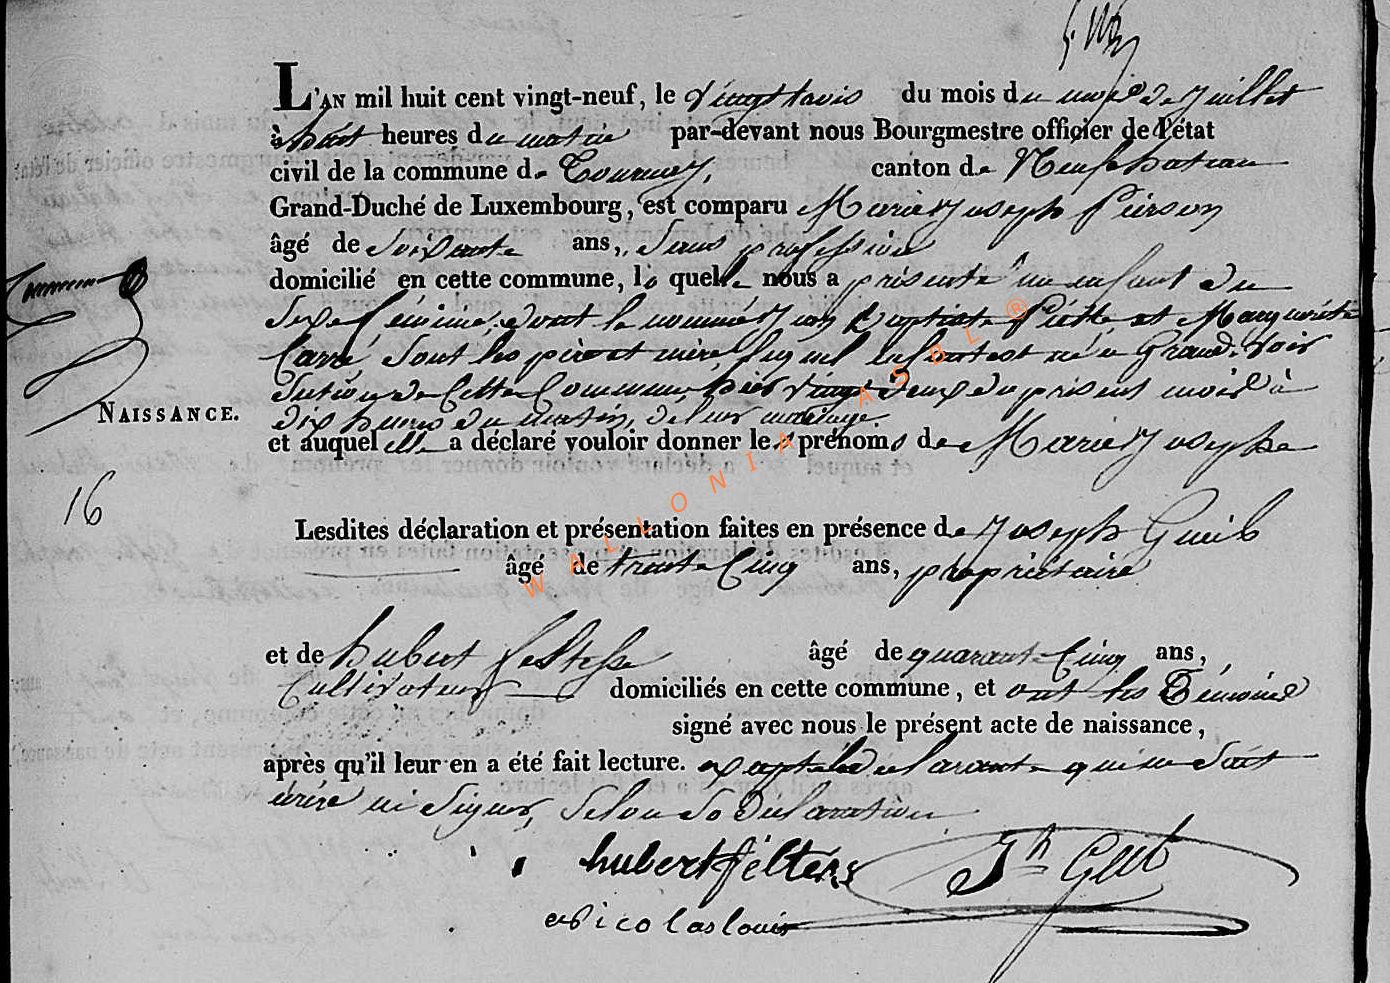 L'AN mil huit cent vingt-neuf, le vingt trois du mois du mois de Juillet
à huit heures du matin par-devant nous Bourgmestre officier de l'état
civil de la commune de Tournay, canton de Neufchateau
Grand-Duché de Luxembourg, est comparu Marie Joseph Pierson
âgé de Soixante ans, Sans profession
domicilié en cette commune, la quelle nous a présenté un enfant du
Sexe féminin, dont le nommé Jean Baptiste et Marguerite
Carré Sont les père et mère, lequel enfant est né a Grand-Voir
Section de Cette Commune, hier vingt deux du présent mois à
dix heures du matin, de leur mariage.
NAISSANCE.
et auquel elle a déclaré vouloir donner les prénoms de Marie Josephe
16
Lesdites déclaration et présentation faites en présence de Joseph
âgé de trente Cinq ans, propriétaire
et de hubert âgé de quarante Cinq ans,
Cultivateur domiciliés en cette commune, et ont les Témoins
signé avec nous le présent acte de naissance,
après qu'il leur en a été fait lecture. excepté la déclarante qui ne Sait
écrire ni Signer, Selon Sa Déclaration
hubert félten
nicolas louis
WALLONIA ASBL ®